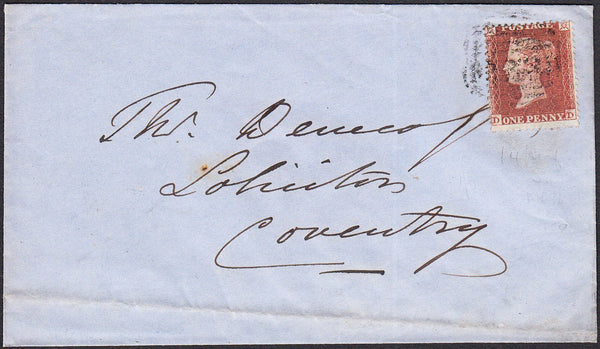 POSTAGE
D ONE PENNY D
Thos.
Solicitor
Coventry